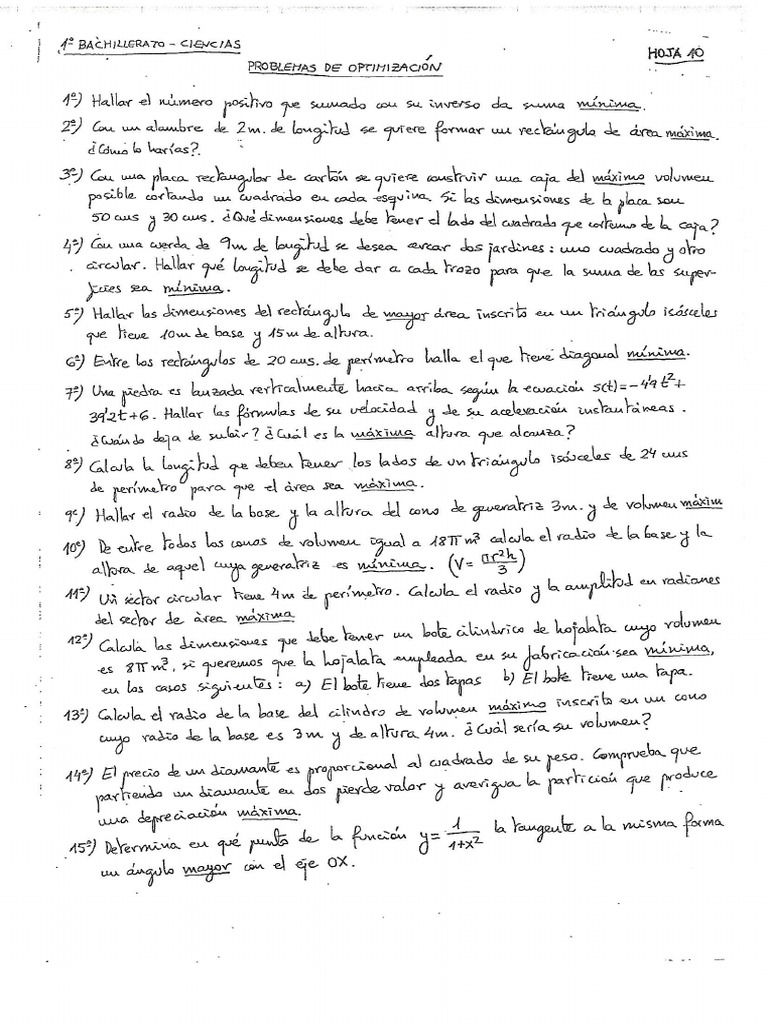 1º BACHILLERATO - CIENCIAS
HOJA 10
PROBLEMAS DE OPTIMIZACIÓN
1º) Hallar el número positivo que sumado con su inverso da suma mínima.
2º) Con un alambre de 2m. de longitud se quiere formar un rectángulo de área máxima.
¿Cómo lo harías?.
3º) Con una placa rectangular de cartón se quiere construir una caja del máximo volumen
posible cortando un cuadrado en cada esquina. Si las dimensiones de la placa son
50 cms y 30 cms. ¿Qué dimensiones debe tener el lado del cuadrado que cortemos de la caja?
4º) Con una cuerda de 9m de longitud se desea cercar dos jardines: uno cuadrado y otro
circular. Hallar qué longitud se debe dar a cada trozo para que la suma de las super-
ficies sea mínima.
5º) Hallar las dimensiones del rectángulo de mayor área inscrito en un triángulo isósceles
que tiene 10m de base y 15m de altura.
6º) Entre los rectángulos de 20 cms. de perímetro halla el que tiene diagonal mínima.
7º) Una piedra es lanzada verticalmente hacia arriba según la ecuación s(t)=-4'9t²+
39'2t+6. Hallar las fórmulas de su velocidad y de su aceleración instantáneas.
¿Cuándo deja de subir? ¿Cuál es la máxima altura que alcanza?
8º) Calcula la longitud que deben tener los lados de un triángulo isósceles de 24 cms
de perímetro para que el área sea máxima.
9º) Hallar el radio de la base y la altura del cono de generatriz 3m. y de volumen máxim
10º) De entre todos los conos de volumen igual a 18π m³ calcula el radio de la base y la
altura de aquel cuya generatriz es mínima. (V= πr²h/3)
11º) Un sector circular tiene 4m de perímetro. Calcula el radio y la amplitud en radianes
del sector de área máxima
12º) Calcula las dimensiones que debe tener un bote cilíndrico de hojalata cuyo volumen
es 8π m³, si queremos que la hojalata empleada en su fabricación sea mínima,
en los casos siguientes: a) El bote tiene dos tapas b) El bote tiene una tapa.
13º) Calcula el radio de la base del cilindro de volumen máximo inscrito en un cono
cuyo radio de la base es 3m y de altura 4m. ¿Cuál sería su volumen?
14º) El precio de un diamante es proporcional al cuadrado de su peso. Comprueba que
partiendo un diamante en dos pierde valor y averigua la partición que produce
una depreciación máxima.
15º) Determina en qué punto de la función y= 1/1+x² la tangente a la misma forma
un ángulo mayor con el eje OX.